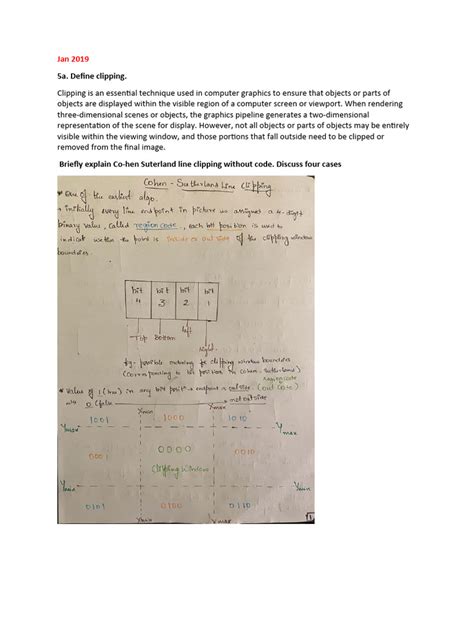 Jan 2019
5a. Define clipping.
Clipping is an essential technique used in computer graphics to ensure that objects or parts of
objects are displayed within the visible region of a computer screen or viewport. When rendering
three-dimensional scenes or objects, the graphics pipeline generates a two-dimensional
representation of the scene for display. However, not all objects or parts of objects may be entirely
visible within the viewing window, and those portions that fall outside need to be clipped or
removed from the final image.
Briefly explain Co-hen Suterland line clipping without code. Discuss four cases
Cohen - Sutherland Line Clipping
* One of the earliest algo.
→ initially every line end point in picture is assigned a 4-digit
binary value, called region code, each bit position is used to
indicate wether the point is inside or outside of the clipping window
boundaries.
bit bit bit bit
4 3 2 1
left
Top Bottom
Right
fig- possible ordering for clipping window boundaries
(corresponding to bit position in cohen-sutherland)
Region code
* Value of 1 (true) in any bit posit → endpoint is outside (out code)
0 (false → not outside
Xmin Xmax
1001 1000 1010
Ymax Ymax
0000
0001 0010
Clipping window
Ymin Ymin
0101 0100 0110
Xmin Xmax